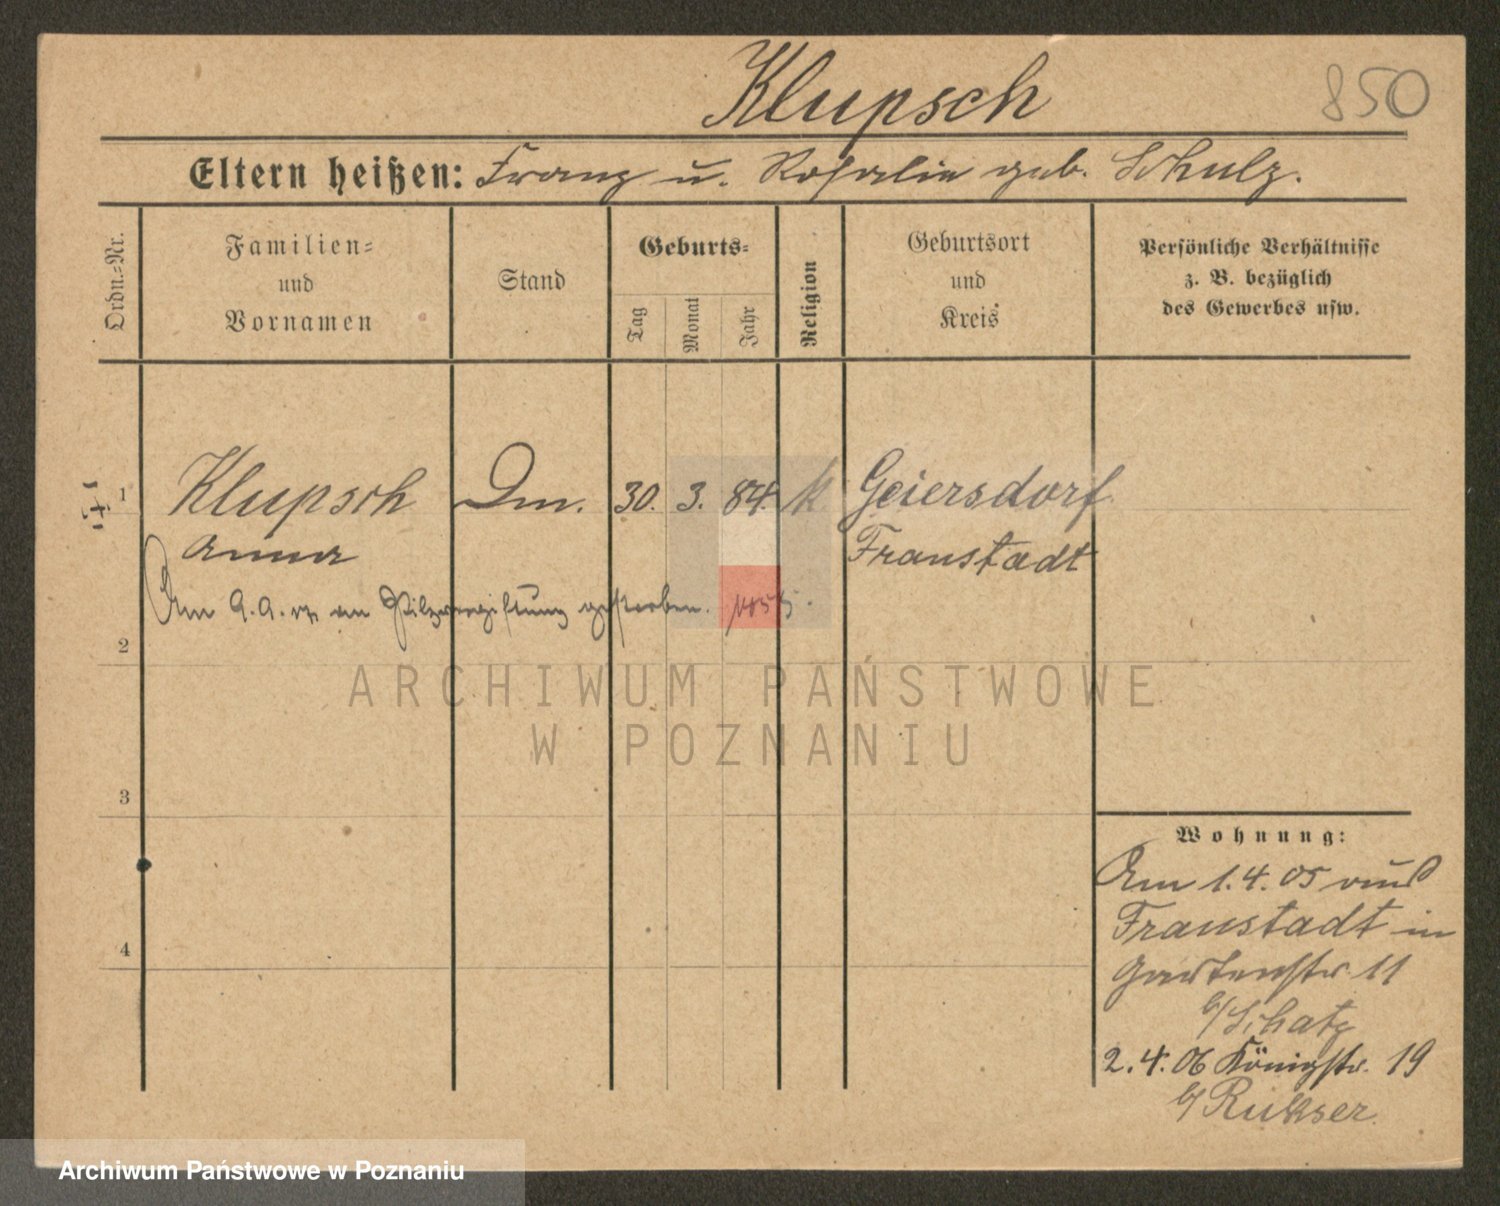 Klupsch
850
Eltern heißen: Franz u. Rosalie geb. Schulz.
Ordn.=Nr.
Familien=
und
Vornamen
Stand
Geburts=
Tag
Monat
Jahr
Religion
Geburtsort
und
Kreis
Persönliche Verhältnisse
z. B. bezüglich
des Gewerbes usw.
1 Klupsch Dm. 30. 3. 84. k. Geiersdorf
Anna Fraustadt
Am 9.9. an Pilzvergiftung gestorben.
2
ARCHIWUM PAŃSTWOWE
W POZNANIU
3
4
Wohnung:
Am 1.4.05 aus
Fraustadt in
Gartenstr. 11
b/Schatz
2.4.06 Königstr. 19
b/
Archiwum Państwowe w Poznaniu